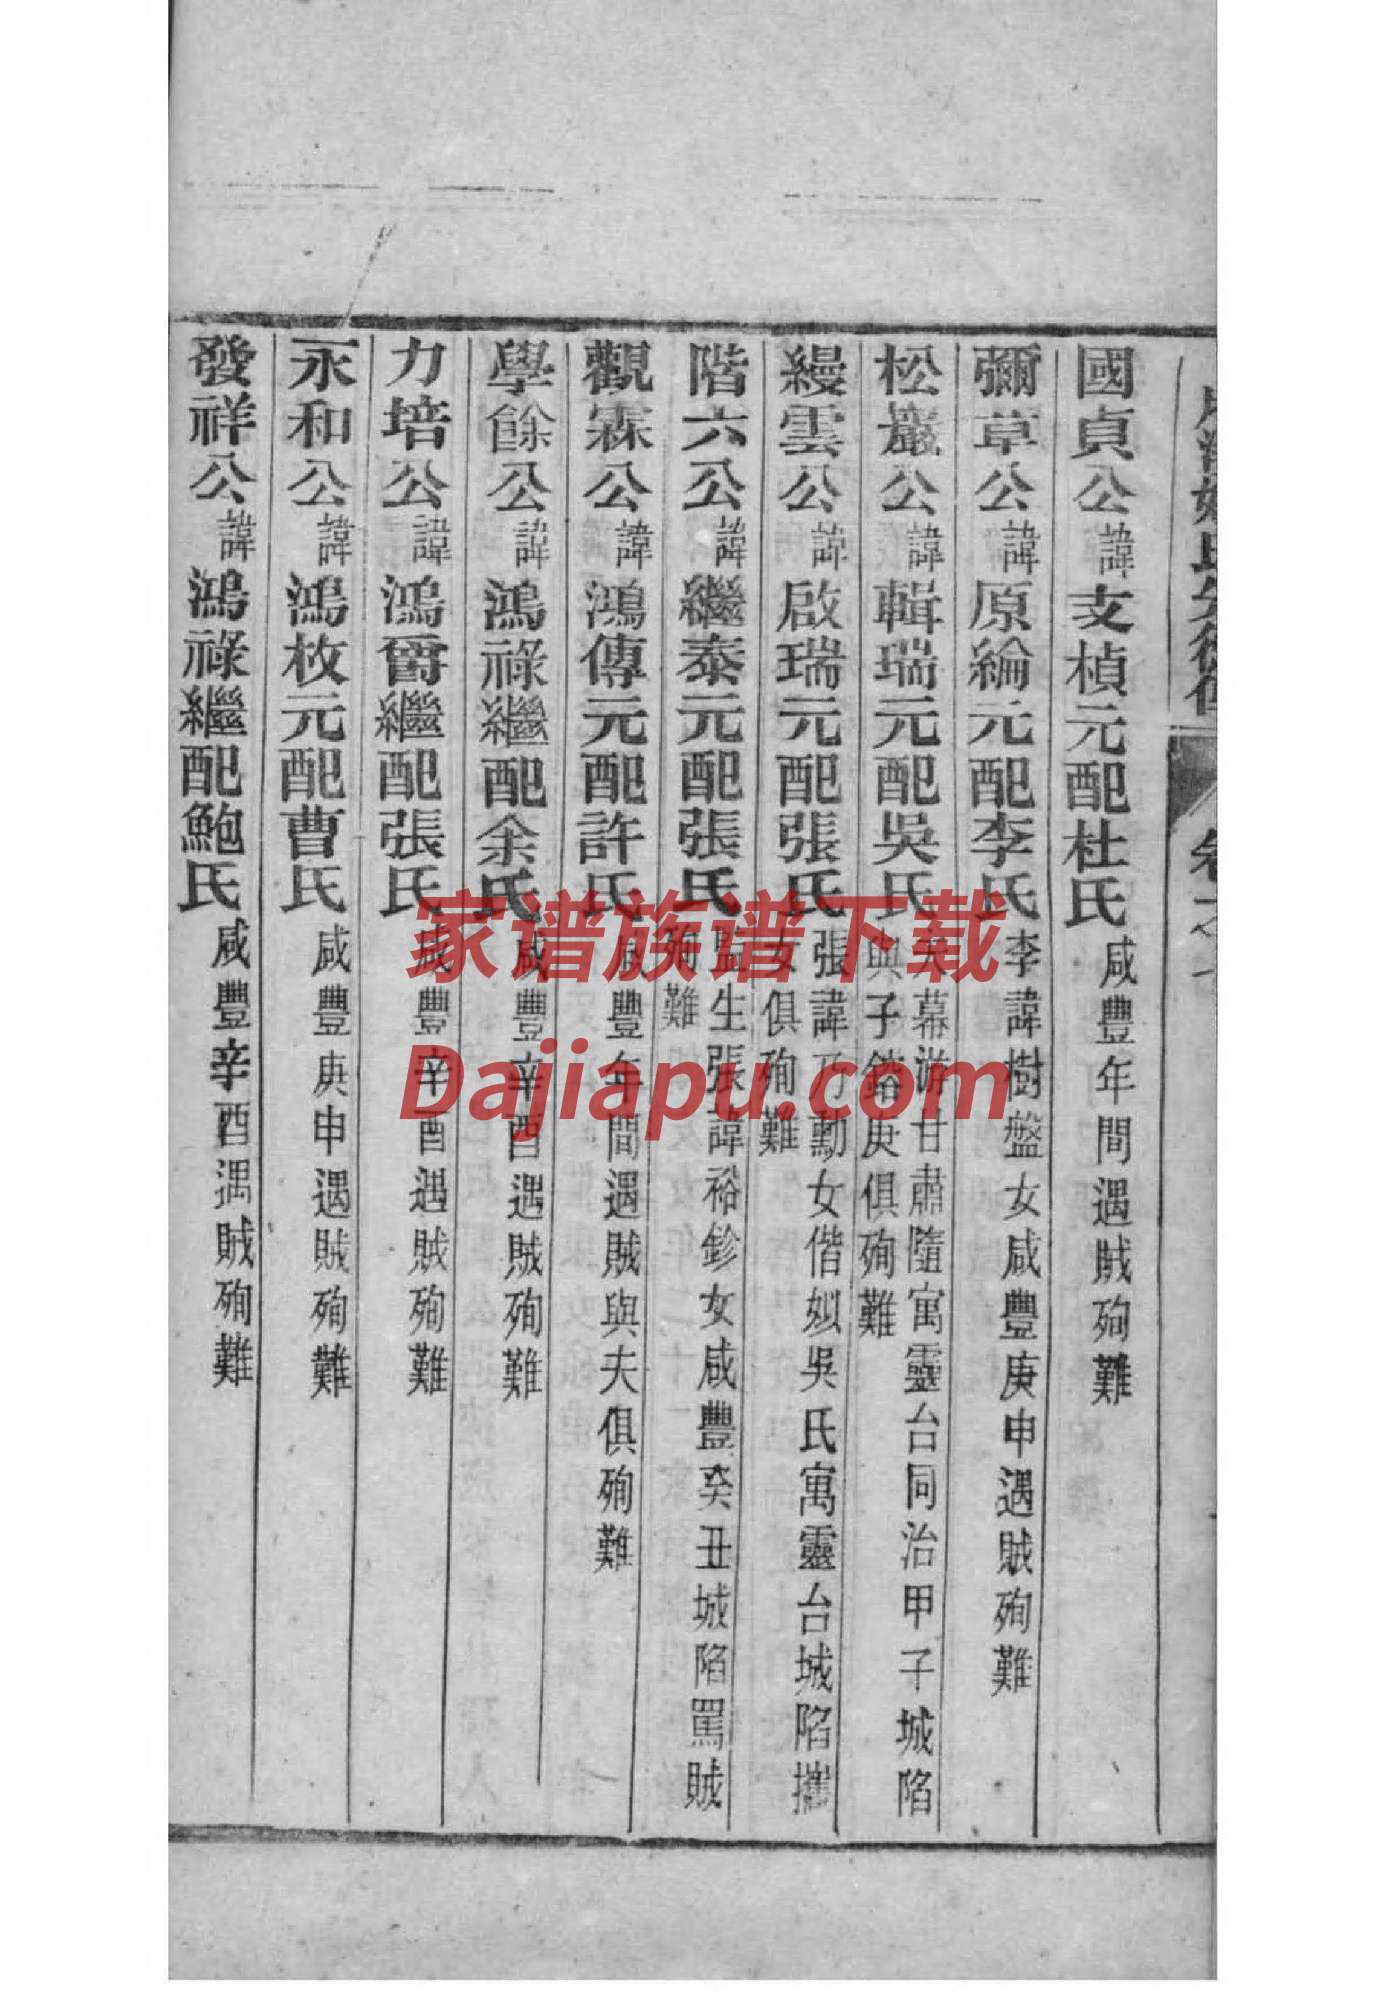 國貞公諱支楨元配杜氏咸豐年間遇賊殉難
彌草公諱原綸元配李氏李諱樹盤女咸豐庚申遇賊殉難
松巖公諱輯瑞元配吳氏夫幕游甘肅隨寓靈台同治甲子城陷
與子鎔庚俱殉難
縵雲公諱啟瑞元配張氏張諱乃勳女偕姒吳氏寓靈台城陷攜
女俱殉難
階六公諱繼泰元配張氏監生張諱裕鉁女咸豐癸丑城陷罵賊
殉難
觀霖公諱鴻傳元配許氏咸豐年間遇賊與夫俱殉難
學餘公諱鴻祿繼配余氏咸豐辛酉遇賊殉難
力培公諱鴻爵繼配張氏咸豐辛酉遇賊殉難
永和公諱鴻枚元配曹氏咸豐庚申遇賊殉難
發祥公諱鴻祿繼配鮑氏咸豐辛酉遇賊殉難
家谱族谱下载
Dajiapu.com